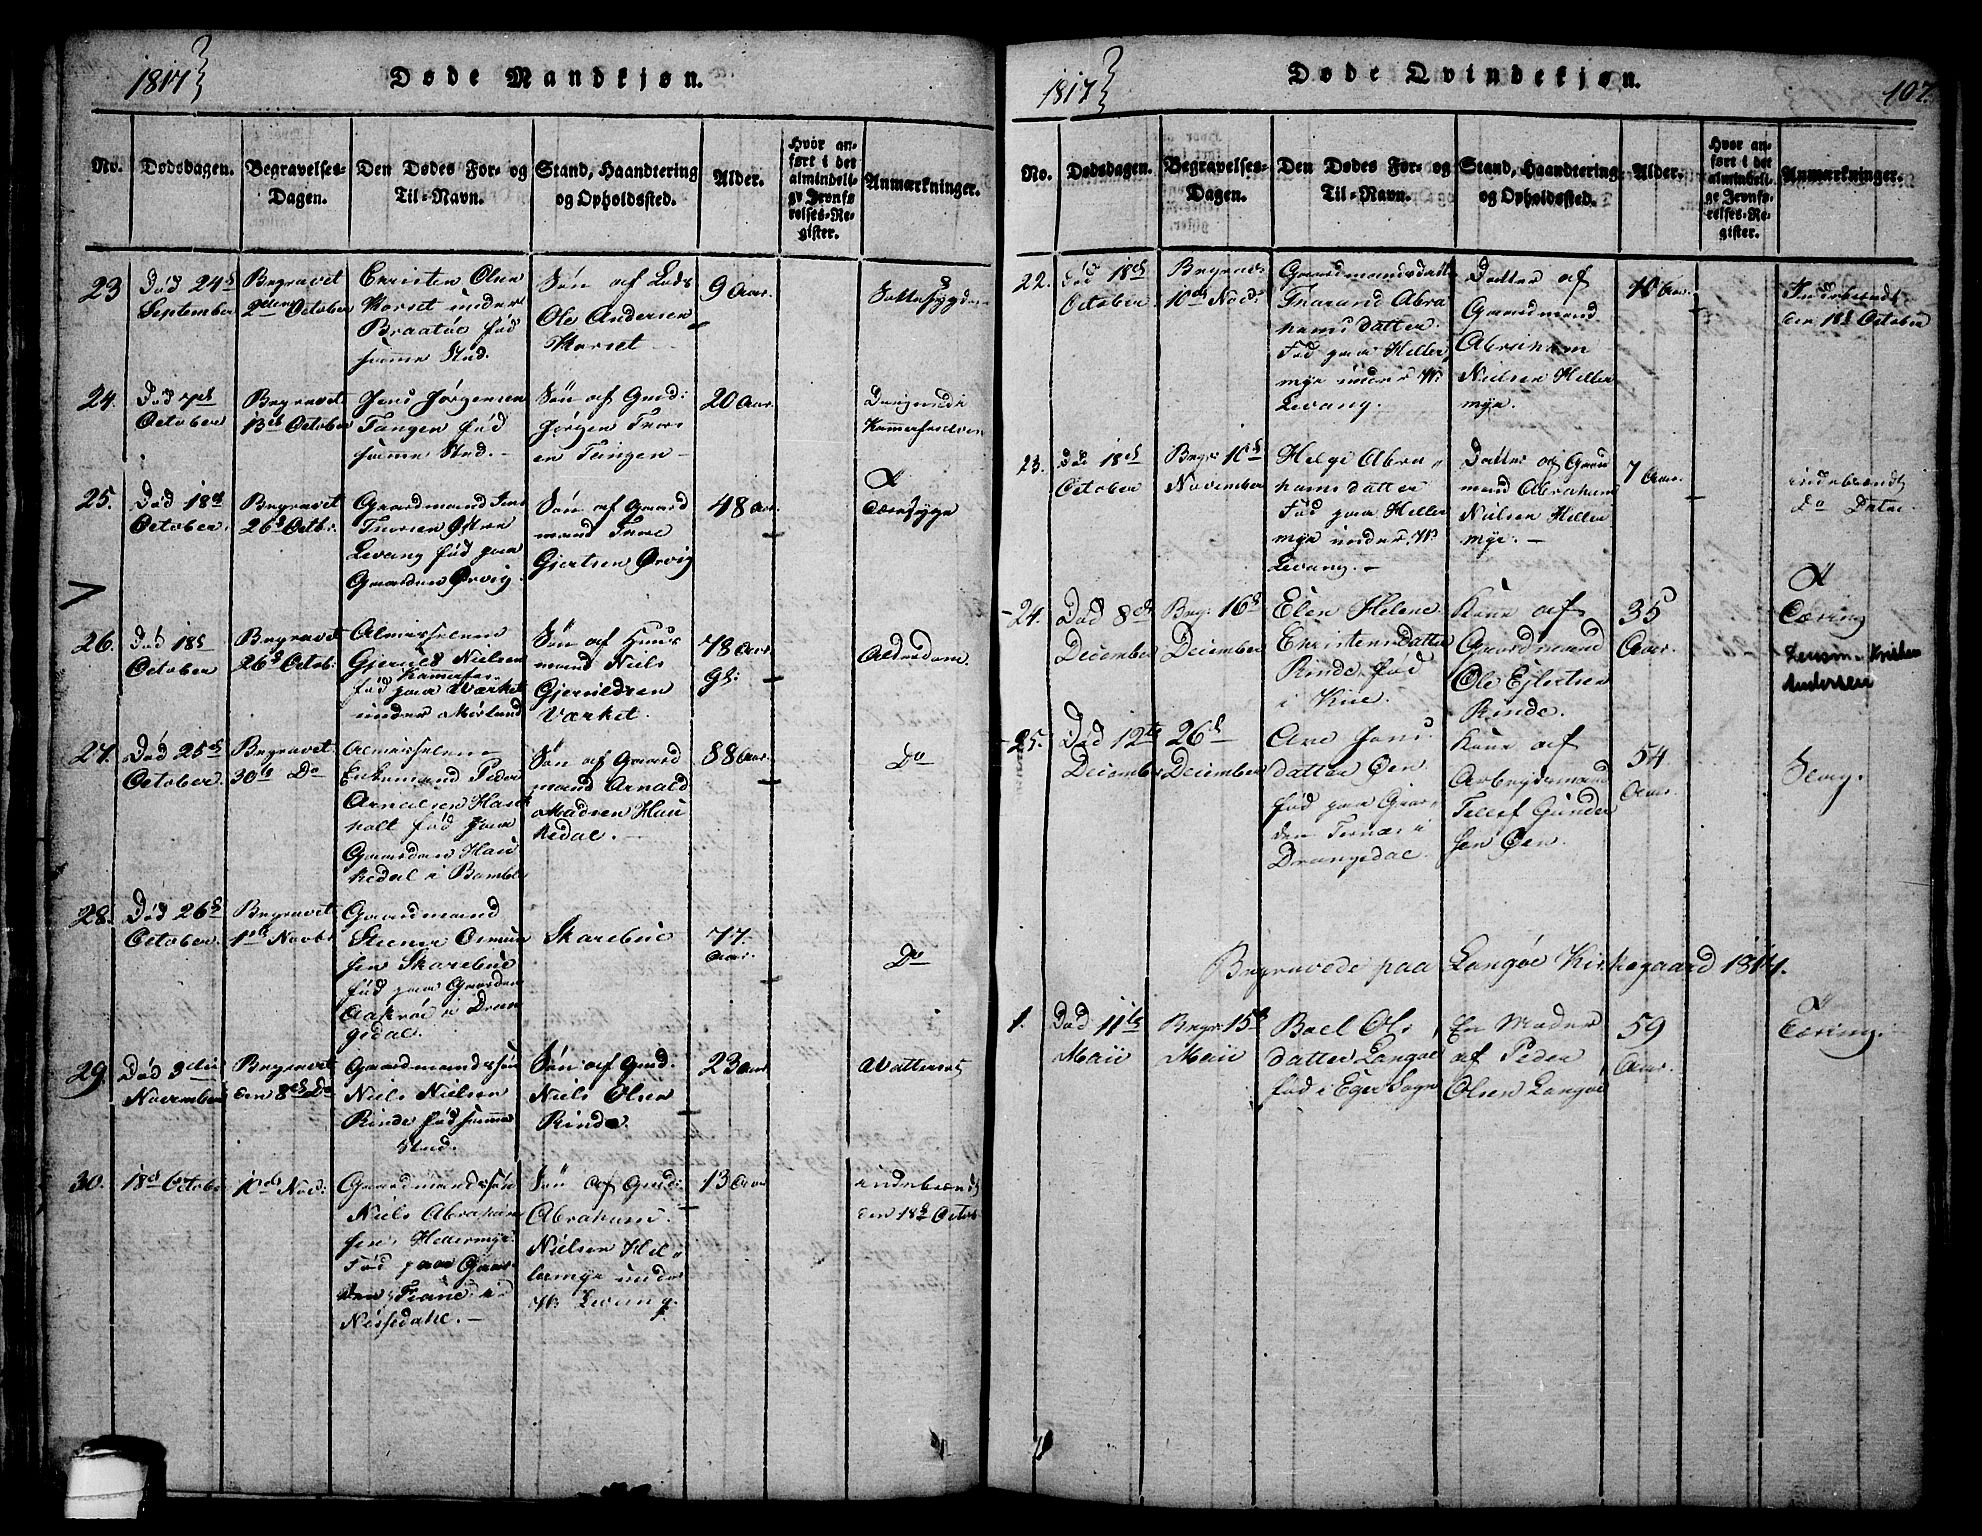 1817
Døde Mandkjøn.
No.
Dødsdagen.
Begravelses-
Dagen.
Den Dødes For- og
Til-Navn.
Stand, Haandtering
og Opholdssted.
Alder.
Hvor an-
ført i det
almindeli-
ge Jevnfø-
relses-Re-
gister.
Anmærkninger.
23
Død 24de
September
Begravet
October
Christen Olsen
Korset under
Braatøe fød
samme Sted.
Søn af Lods
Ole Andersen
Korset
9 Aar.
24.
Død
October
Begravet
13de October
Jens Jørgensen
Tangen fød
samme Sted.
Søn af Gmd:
Jørgen Tors
en Tangen
20 Aar.
25.
Død 18de
October.
Begravet
26de Octb:
Gaardmand Jens
Thorsen Østre
Levang fød paa
Gaarden Ørvig.
Søn af Gaard
mand Tore
Gjertsen Ørvig
48 Aar.
Tæresyge
26.
Død 18de
October
Begravet
26de Octob:
Almisselem
Gjeruld Nielsen
fød paa Værket
under Mørland
Søn af Huus
mand Niels
Gjeruldsen
Værket.
78 Aar
gl:
Alderdom.
27.
Død 25de
October.
Begravet
30te Do
Almisselem
Enkemand Peder
Arnalsen
holt fød paa
Gaarden Hau
kedal i Bamble
Søn af Gaard
mand Arnald
Madsen Hau
kedal.
88 Aar.
Do
28.
Død 26de
October.
Begravet
1ste Novbr
Gaardmand
Steener Osmun
sen Skarebue
fød paa Gaarden
i Dran
gedal.
Skarebue
77.
Aar.
Do
29.
Død 3die
November
Begravet
den 8de Do
Gaardmandssøn
Niels Nielsen
Rinde fød samme
Sted.
Søn af Gmd.
Niels Olsen
Rinde.
23 Aar
Vattersot
30.
18de October
10de Nov:
Gaardmandssøn
Niels Abraham
sen Hellermyr
Fød paa Gaar
den Fiane i
Nissedahl.
Søn af Gmd:
Abraham
Nielsen Hel
lermyr under
W: Levang.
13 Aar
indebrændt
den 18de October
1817
Døde Qvindekjøn.
107.
No.
Dødsdagen.
Begravelses-
Dagen.
Den Dødes For- og
Til-Navn.
Stand, Haandtering
og Opholdssted.
Alder.
Hvor an-
ført i det
almindeli-
ge Jevnfø-
relses-Re-
gister.
Anmærkninger.
22.
Død 18de
October
10de Nov:
Gaardmandsdatt
Tharand Abra
hamsdatter.
Fød paa Heller
myr under W:
Levang.
Datter af
Gaardmand
Abraham
Nielsen Heller
myr.
10 Aar.
Indebrændt
den 18de October
23.
Død 18de
October
Begr: 10de
November
Helge Abra
hamsdatter
Fød paa Heller
myr under W:
Levang.
Datter af Gaard
mand Abraham
Nielsen Heller
myr.
7 Aar.
indebrændt
Do Dato
24.
Død 8de
December
Beg: 16de
December
Elen Helene
Christensdatter
Rinde fød
i Kiil.
Kone af
Gaardmand
Ole Ejlertsen
Rinde.
35
Aar.
Tæring
Andersen
25.
Død 12te
December
26de
December
Ave Jens
datter Øen
fød paa Gaar
den i
Drangedal.
Kone af
Arbeydsmand
Tellef Gunder
sen Øen.
54
Aar.
Begravede paa Langøe Kirkegaard 1817.
1.
Død 11te
Maii
Begr: 15de
Maii
Boel Ols
datter Langøe
fød i Eger Sogn
En Moder
af Peder
Olsen Langøe
59
Aar.
Tæring.